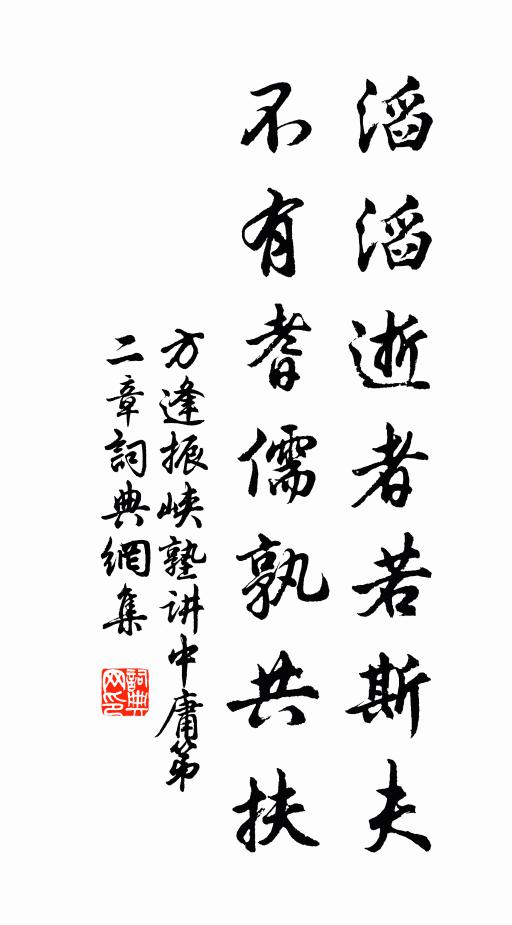 滔滔逝者若斯夫
不有耆儒孰共扶
方逢振峡塾讲中庸第
二章詞典網集
詞典
网印